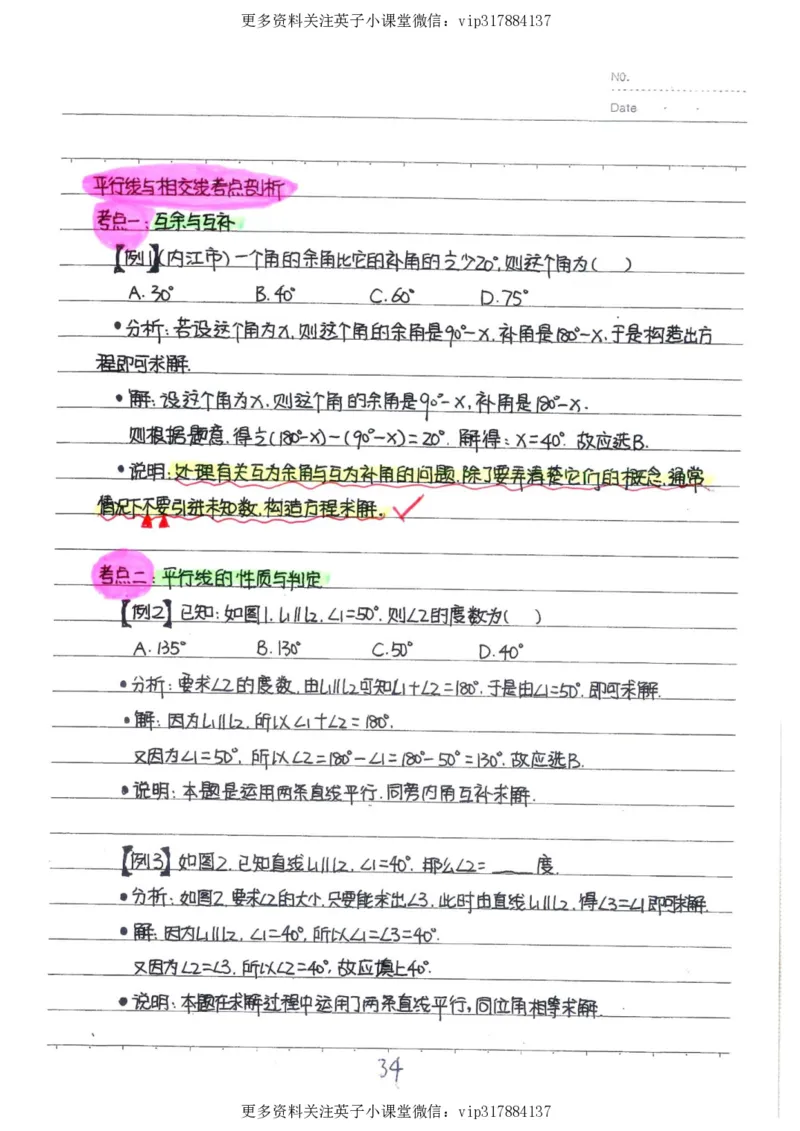 更多资料关注英子小课堂微信：vip317884137
NO.
Date
平行线与相交线考点剖析
考点一：互余与互补
【例1】(内江市)一个角的余角比它的补角的½少20°,则这个角为( )
A.30° B.40° C.60° D.75°
•分析:若设这个角为x,则这个角的余角是90°-x,补角是180°-x,于是构造出方
程即可求解.
•解:设这个角为x,则这个角的余角是90°-x,补角是180°-x.
则根据题意,得½(180°-x)-(90°-x)=20°.解得:x=40°.故应选B.
•说明:处理有关互为余角与互为补角的问题,除了要弄清楚它们的概念,通常
情况下不要引进未知数,构造方程求解。
考点二:平行线的性质与判定
【例2】已知:如图1,l1∥l2,∠1=50°,则∠2的度数为( )
A.135° B.130° C.50° D.40°
•分析:要求∠2的度数,由l1∥l2可知∠1+∠2=180°,于是由∠1=50°,即可求解.
•解:因为l1∥l2,所以∠1+∠2=180°.
又因为∠1=50°,所以∠2=180°-∠1=180°-50°=130°.故应选B.
•说明:本题是运用两条直线平行,同旁内角互补求解.
【例3】如图2,已知直线l1∥l2,∠1=40°,那么∠2=____度.
•分析:如图2,要求∠2的大小,只要能求出∠3,此时由直线l1∥l2,得∠3=∠1即可求解.
•解:因为l1∥l2,∠1=40°,所以∠1=∠3=40°.
又因为∠2=∠3,所以∠2=40°,故应填上40°.
•说明:本题在求解过程中运用了两条直线平行,同位角相等求解.
34
更多资料关注英子小课堂微信：vip317884137